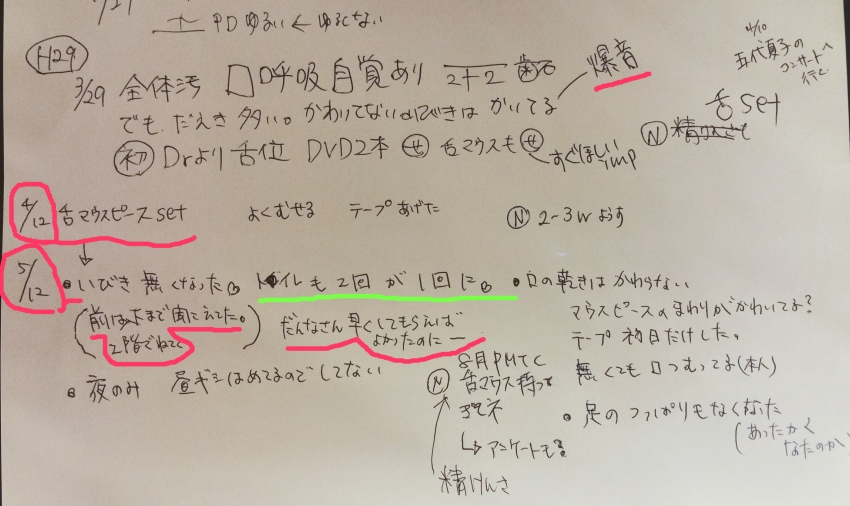 PD ゆるい ← ゆるくない
H29
3/29 全体汚 口呼吸自覚あり 2+2 爆音
4/10 五代夏子の
コンサートへ
行く
でも、だえき 多い。かわいてない いびきは かいてる
舌set
初 Drより 舌位 DVD2本 舌マウスも
すぐほしい imp
N
4/12 舌マウスピースset よくむせる テープあげた N 2~3w ようす
5/12 ・いびき 無くなった トイレも 2回 が 1回に ・口の乾きは かわらない
(前は下まで聞こえてた。
2階でねてて)
だんなさん 早くしてもらえば
よかったのにー
マウスピースのまわりがかわいてる?
テープ 初日だけした。
無くても 口つむってる(本人)
・夜のみ 昼ギシはめてるのでしてない
N 8月PMTC
舌マウス持って
きてネ
↳ アンケートもる
精けんさ
・足の つっぱりもなくなった
(あったかく
なったのか?